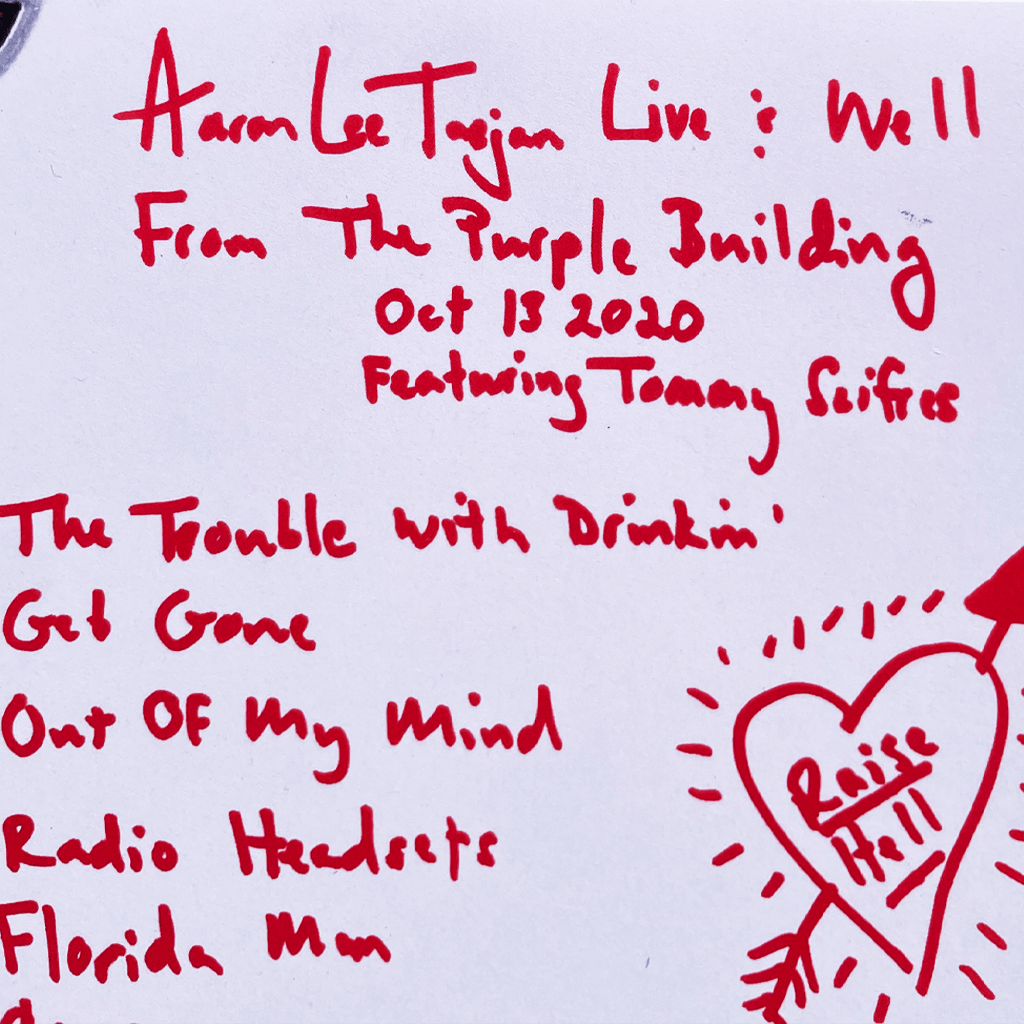 Aaron Lee Tasjan Live & Well
From The Purple Building
Oct 13 2020
Featuring Tommy Scifres
The Trouble with Drinkin'
Get Gone
Out OF My Mind
Raise
Hell
Radio Headsets
Florida Man